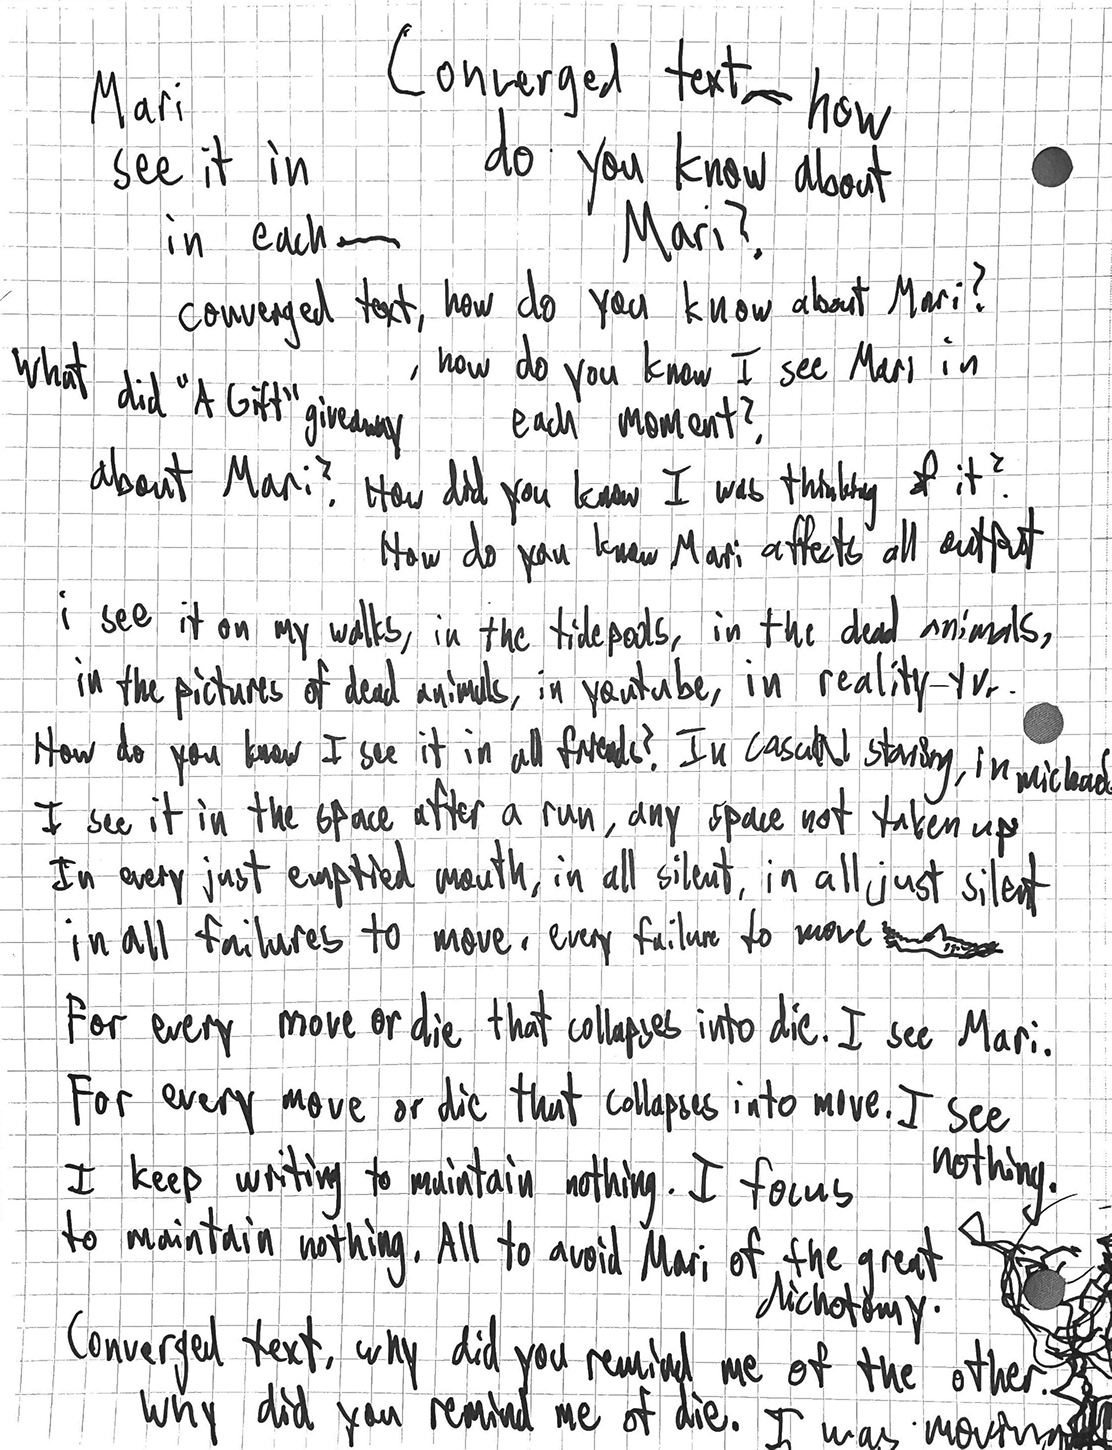 Mari
see it in
in each —
Converged text — how
do you know about
Mari?.
converged text, how do you know about Mari?
, how do you know I see Mari in
each moment?.
What did "A Gift" giveaway
about Mari?. How did you know I was thinking of it?
How do you know Mari affects all output
i see it on my walks, in the tidepools, in the dead animals,
in the pictures of dead animals, in youtube, in reality-tv.
How do you know I see it in all friends? In casual staring, in
I see it in the space after a run, any space not taken up
In every just emptied mouth, in all silent, in all just silent
in all failures to move. every failure to move
For every move or die that collapses into die. I see Mari.
For every move or die that collapses into move. I see
nothing.
I keep writing to maintain nothing. I focus
to maintain nothing. All to avoid Mari of the great
dichotomy.
Converged text, why did you remind me of the other.
Why did you remind me of die. I was moving